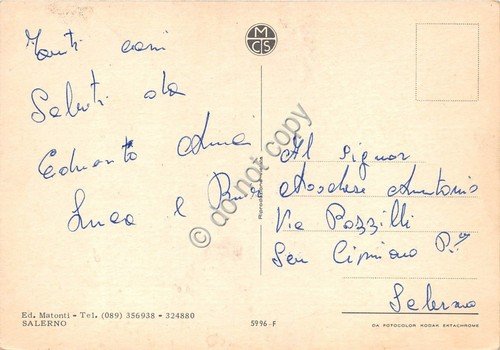 Tanti cari
Saluti da
Edoardo Anna
Luca e
M
CS
Al Signor
Antonio
Via Pozzilli
San Cipriano P.
Salerno
do not copy
Ed. Matonti - Tel. (089) 356938 - 324880
SALERNO
5996-F
DA FOTOCOLOR KODAK EKTACHROME